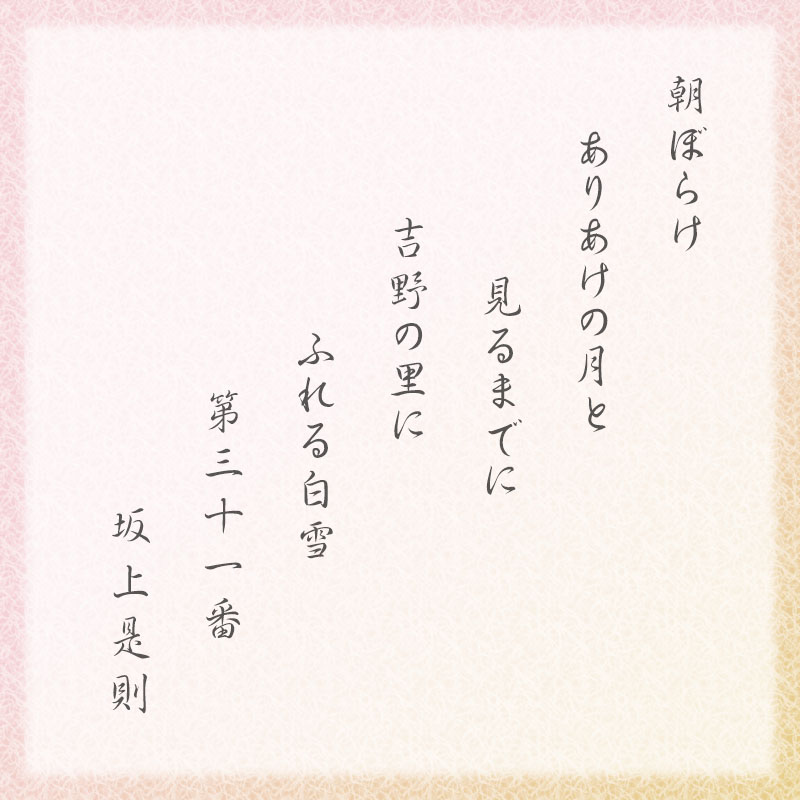 朝ぼらけ
ありあけの月と
見るまでに
吉野の里に
ふれる白雪
第三十一番
坂上是則